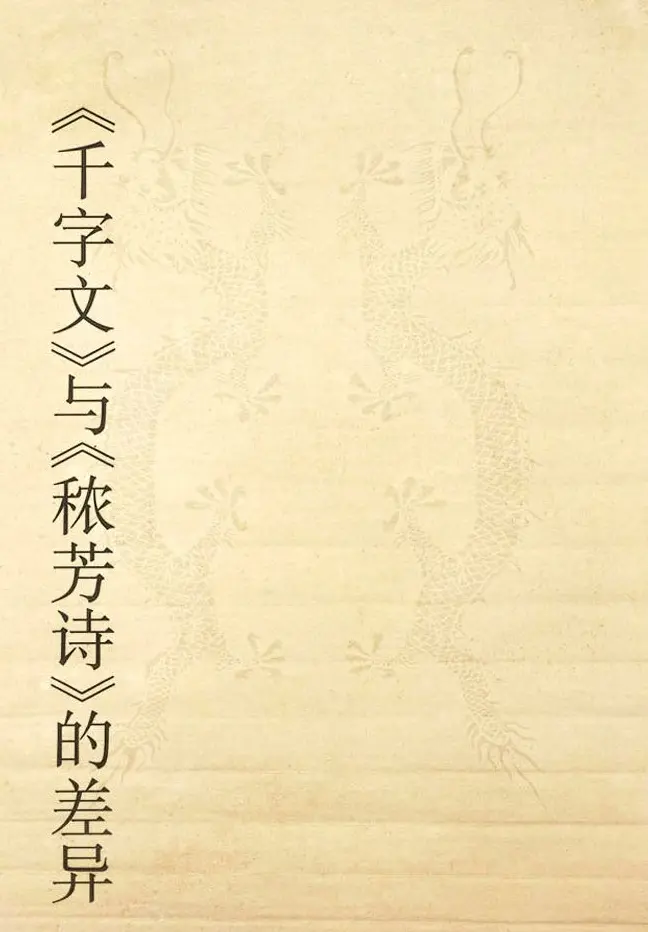 《千字文》与《秾芳诗》的差异